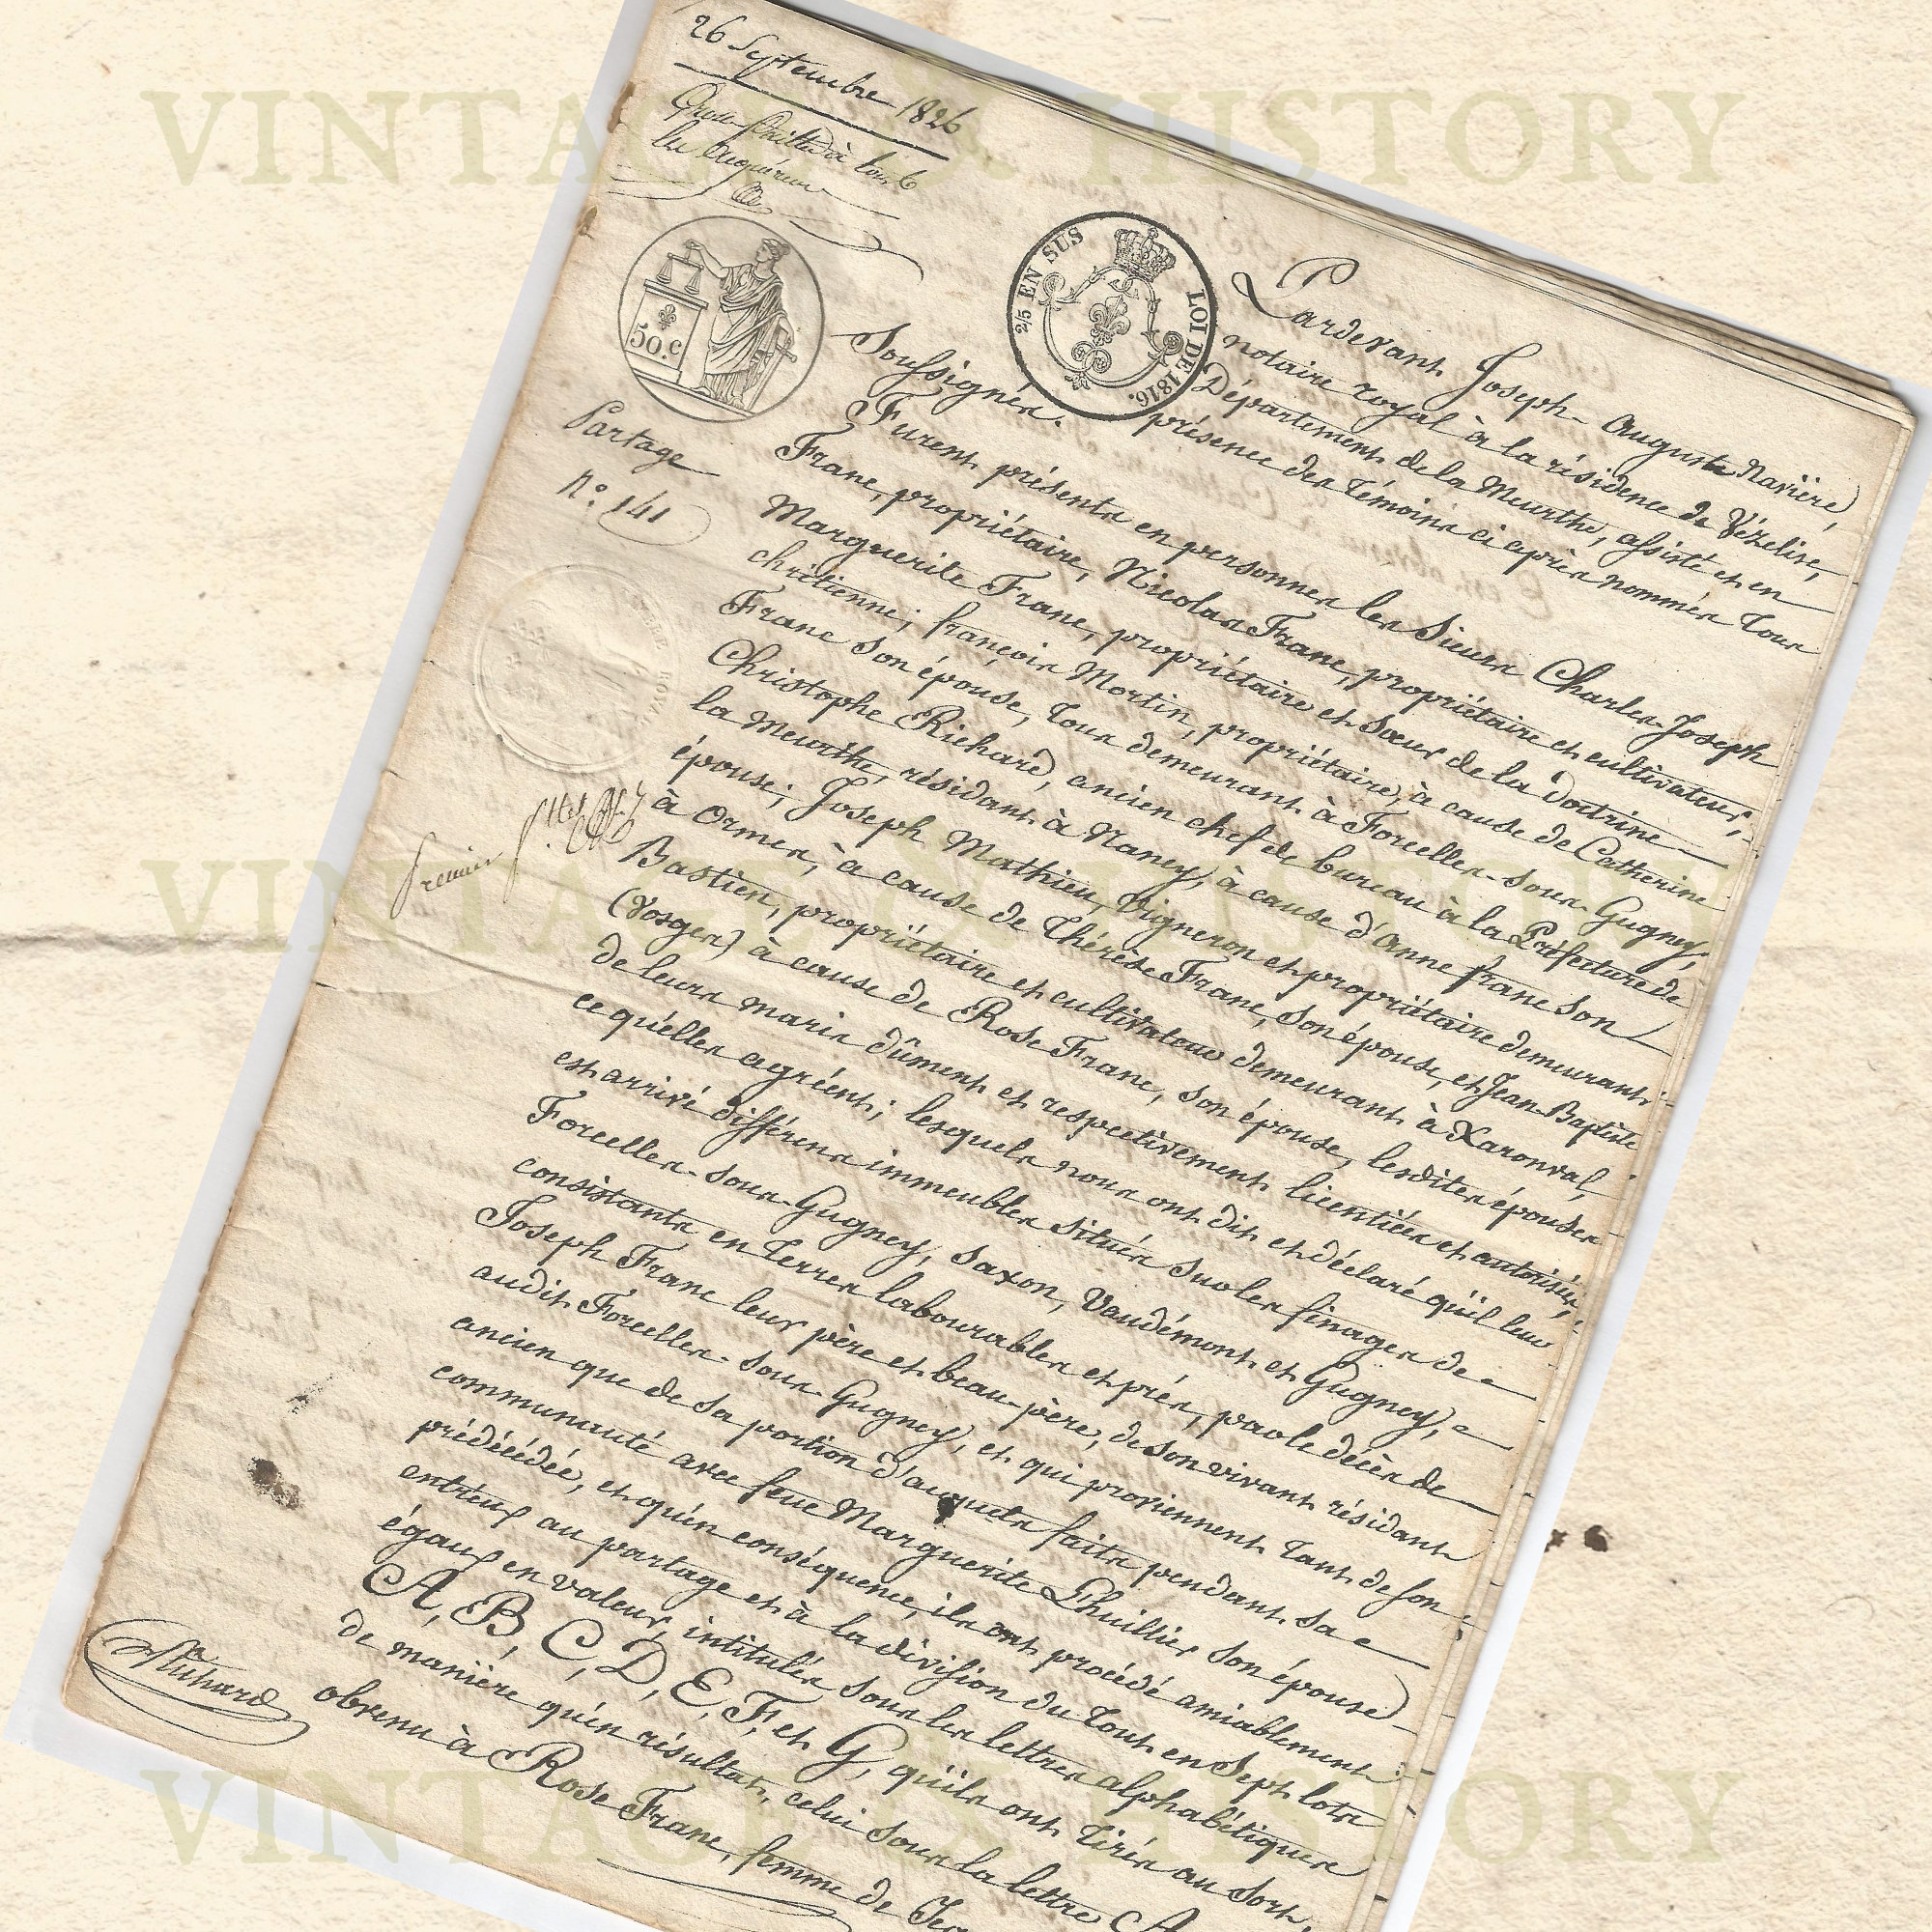 VINTAGE & HISTORY
26 Septembre 1826
Grosse
les acquéreurs
50.c
2/5 EN SUS LOI DE 1816.
Partage
N.o 141
Pardevant Joseph Auguste Navière,
notaire royal à la résidence de Vézelise,
Département de la Meurthe, assisté et en
présence des témoins ci après nommés tous
Soussignés.
Furent présents en personnes les Sieurs Charles-Joseph
Franc, propriétaire, Nicolas Franc, propriétaire et cultivateur,
Marguerite Franc, propriétaire et Sœur de la doctrine
chrétienne; françois Mortin, propriétaire, à cause de Catherine
Franc son épouse, tous demeurant à Forcelles-sous-Gugney,
Christophe Richard, ancien chef de bureau à la Préfecture de
la Meurthe, résidant à Nancy, à cause d'anne franc son
épouse; Joseph Mathieu, Vigneron et propriétaire demeurant
à Ormes, à cause de Thérèse Franc, son épouse, et Jean-Baptiste
Bastien, propriétaire et cultivateur demeurant à Xaronval,
(Vosges) à cause de Rose Franc, son épouse, lesdites épouses
de leurs maris dûment et respectivement licentiées et autorisées,
ce qu'elles agréent; lesquels nous ont dit et déclaré qu'il leur
est arrivé différens immeubles situés sur les finages de
Forcelles-sous-Gugney, Saxon, Vaudémont et Gugney,
consistants en terres labourables et prés, par le décès de
Joseph Franc leur père et beau-père, de son vivant résidant
audit Forcelles-sous-Gugney, et qui proviennent tant de son
ancien que de sa portion d'acquets faits pendant sa
communauté avec feue Marguerite Lhuillier son épouse
prédécédée, et qu'en conséquence, ils ont procédé amiablement
entr'eux au partage et à la division du tout en Sept lots
égaux en valeur, intitulés sous les lettres alphabétiques
A, B, C, D, E, F, et G, qu'ils ont tirés au Sort,
de manière qu'en résultat, celui sous la lettre A
obvenu à Rose Franc, femme de
premier
Richard
VINTAGE & HISTORY
VINTAGE & HISTORY